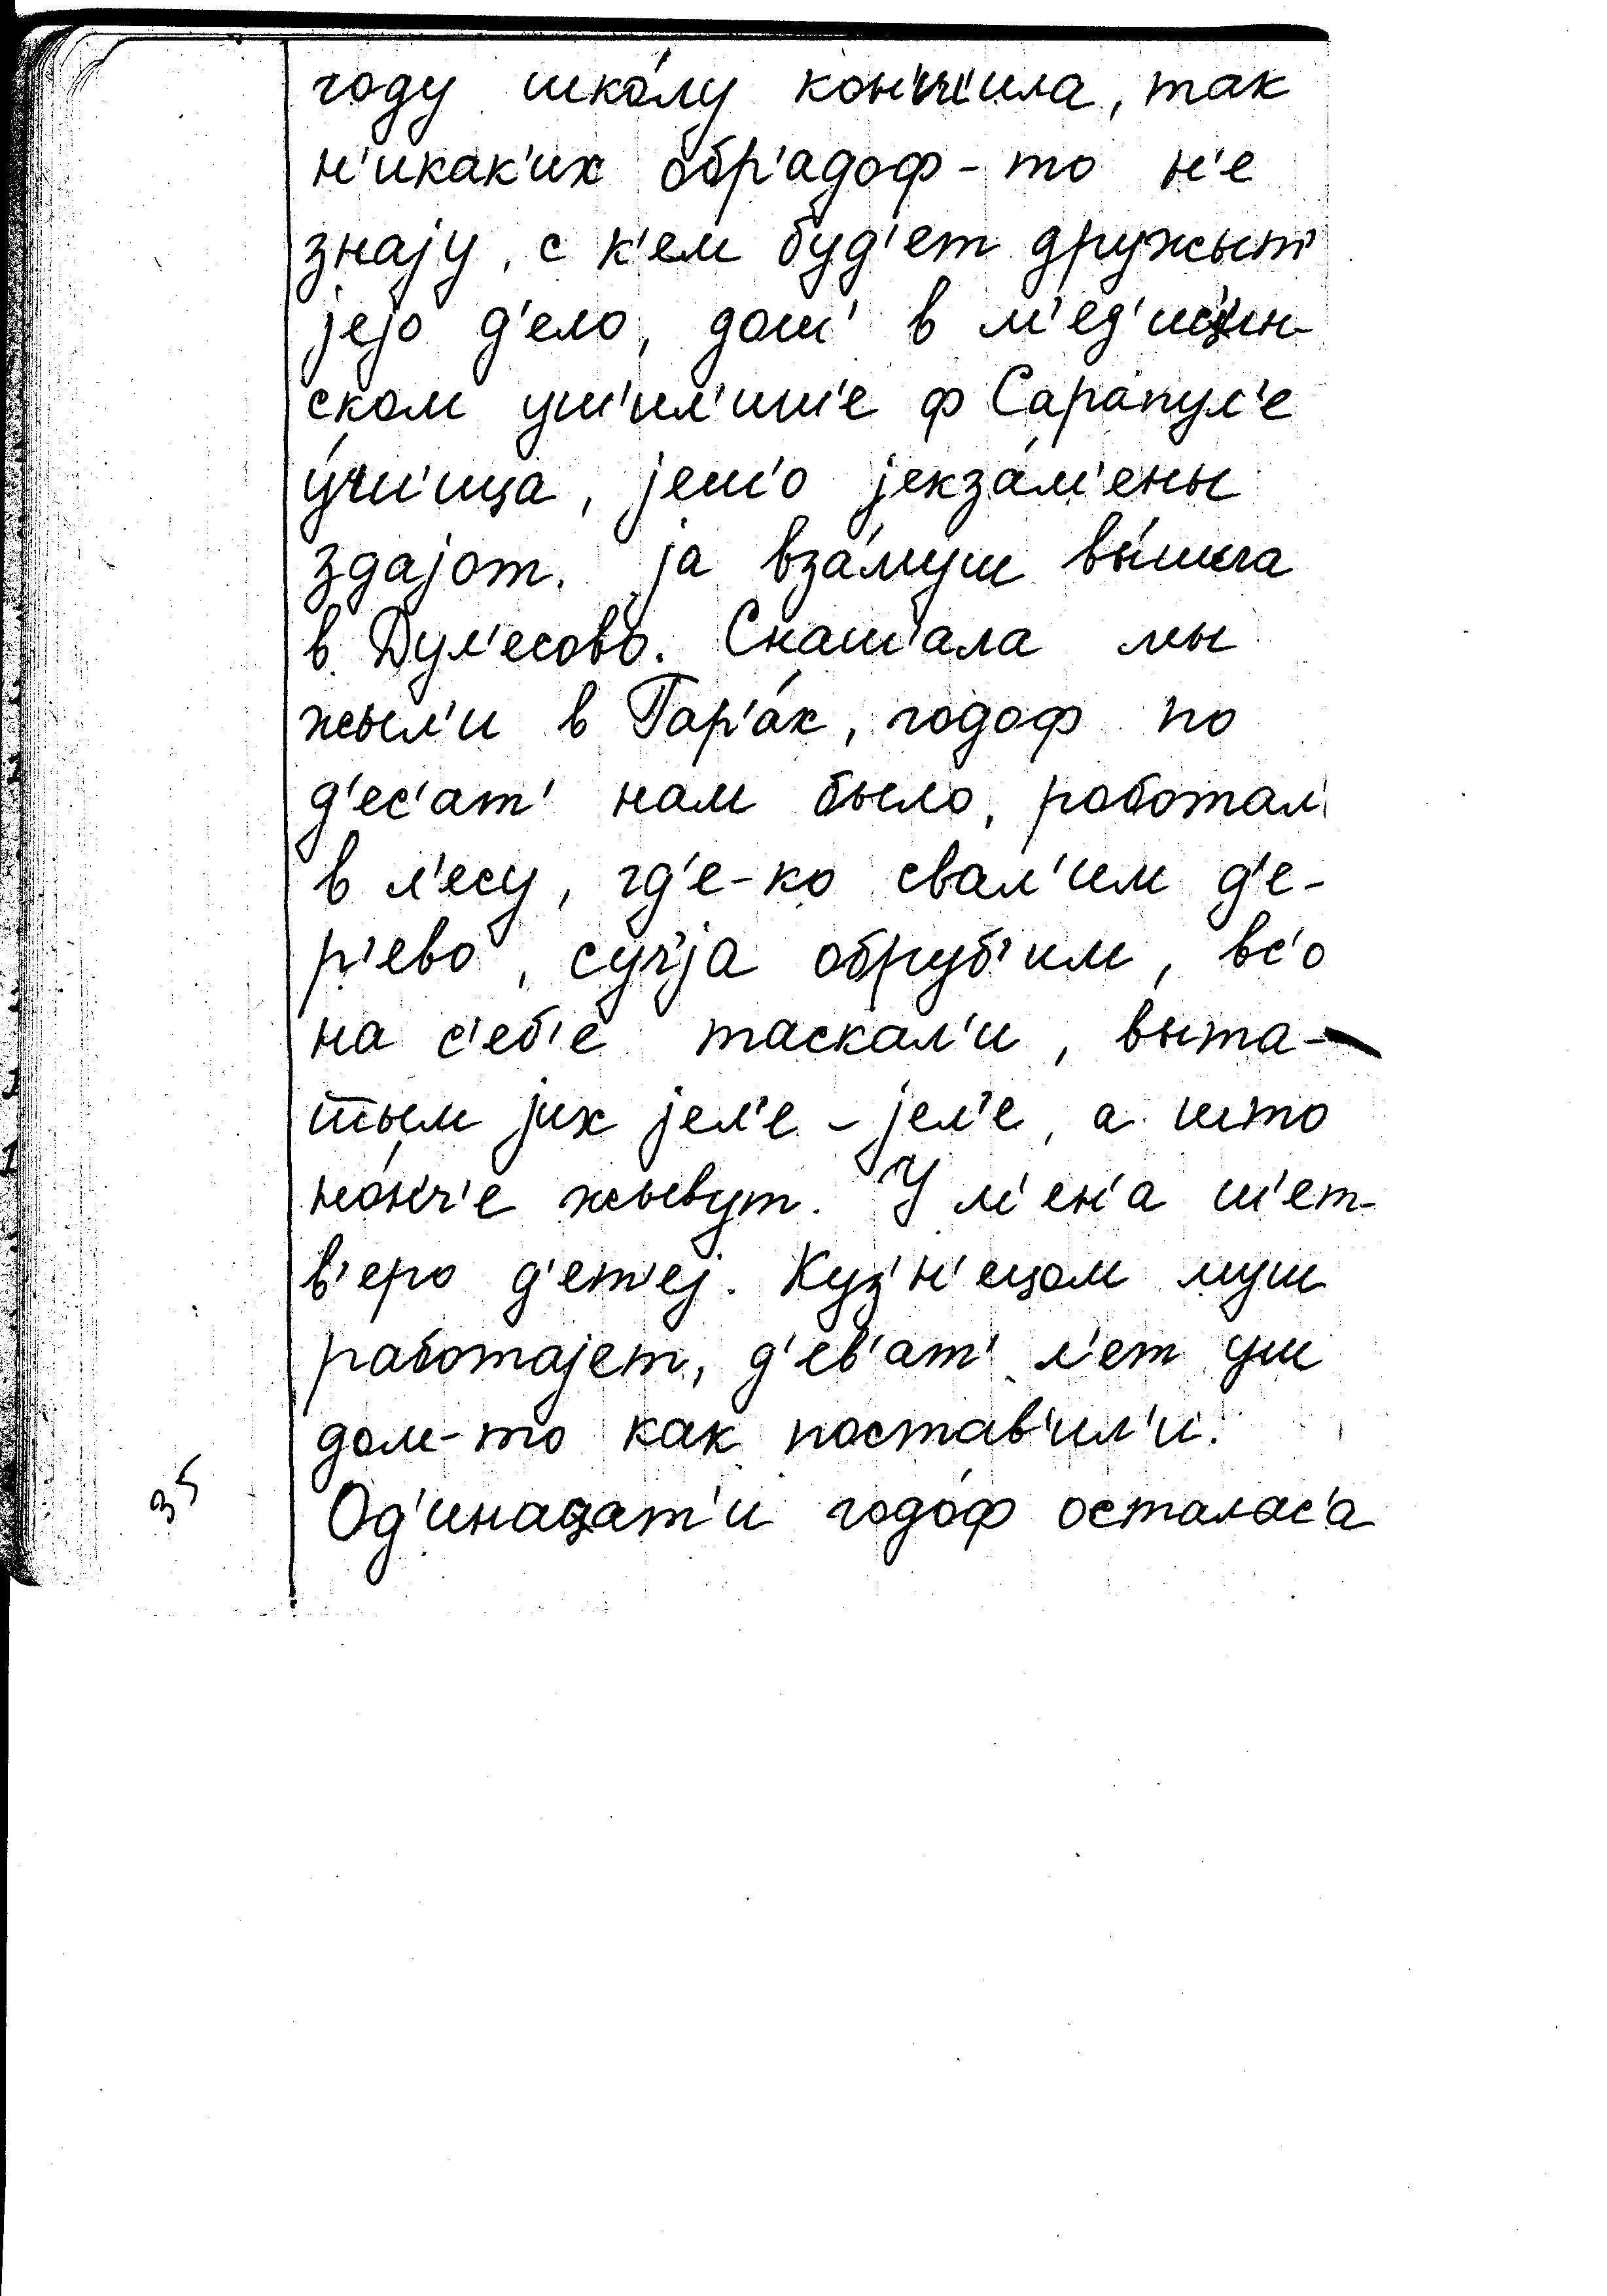 году шко́лу кон'ш'ила, так
н'икак'их обр'адоф-то н'е
знаjу, с к'ем буд'ет дружыт'
jеjо д'ело, дош' в м'ед'ицин-
ском уш'ил'иш'е ф Сарапул'е
у́ч'ица, jеш'о jекза́м'ены
здаjот. jа вза́муш вы́шла
в Дул'есово. Снаш'ала мы
жыл'и в Гар'а́х, годоф по
д'ес'ат' нам было, работал'
в л'есу, гд'е-ко свал'им д'е-
р'ево, суч'jа обруб'им, вс'о
на с'еб'е таскал'и, выта-
шым jих jел'е-jел'е, а што
но́нч'е жывут. У м'ен'а ш'ет-
в'еро д'ет'еj. Куз'н'ецом муш
работаjет, д'ев'ат' л'ет уш
дом-то как постав'ил'и.
35
Од'инацат'и годо́ф осталас'а